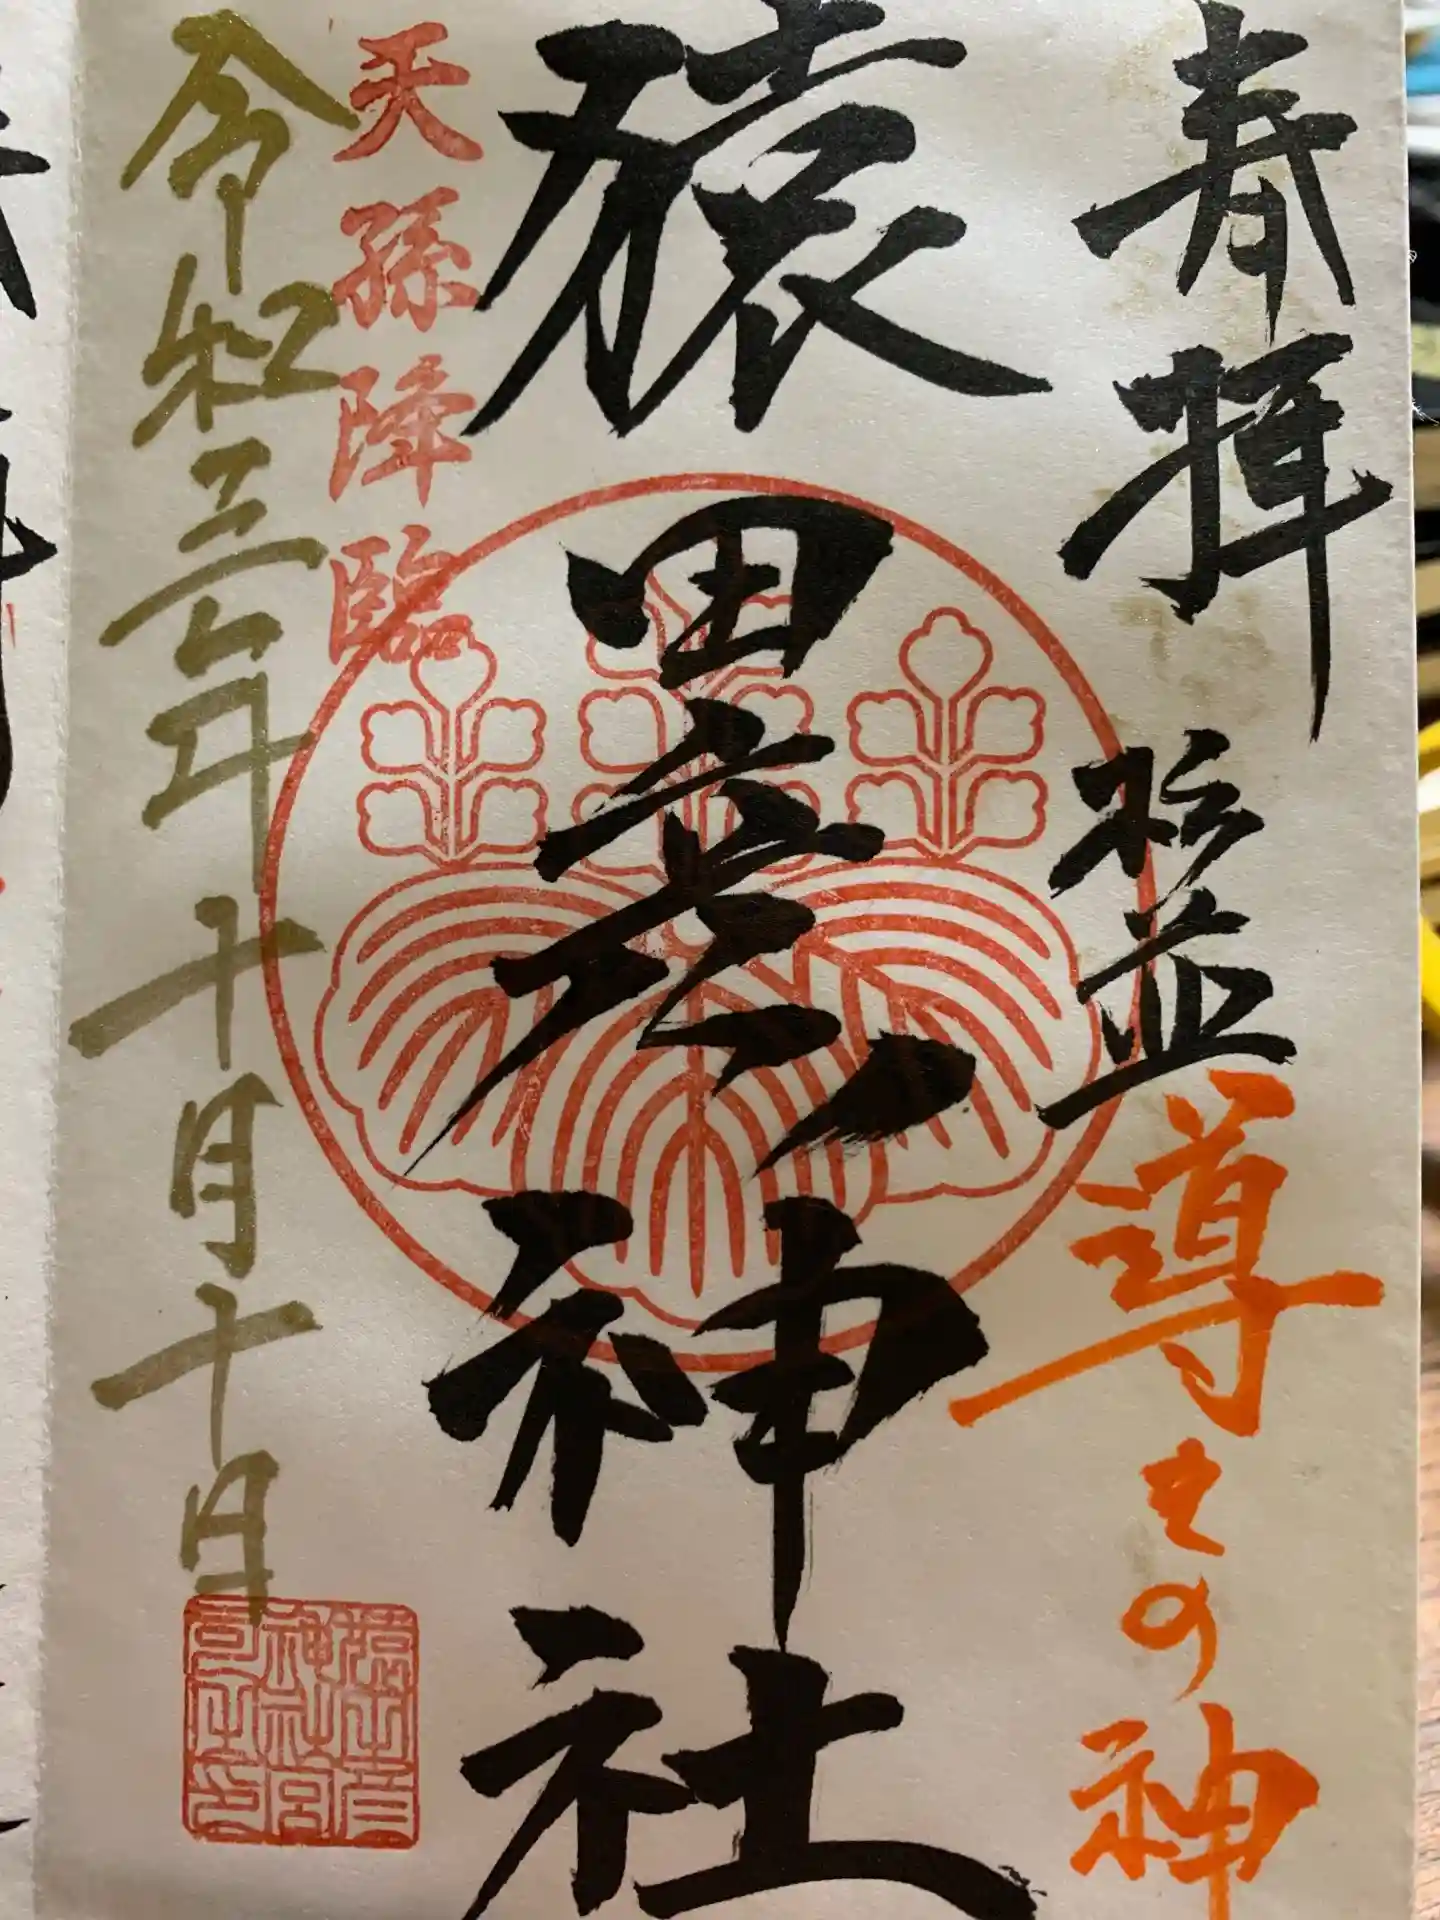 奉拝
導きの神
猿田彦神社
天孫降臨
令和三年十月十日
猿田彦
神社宮
司之印